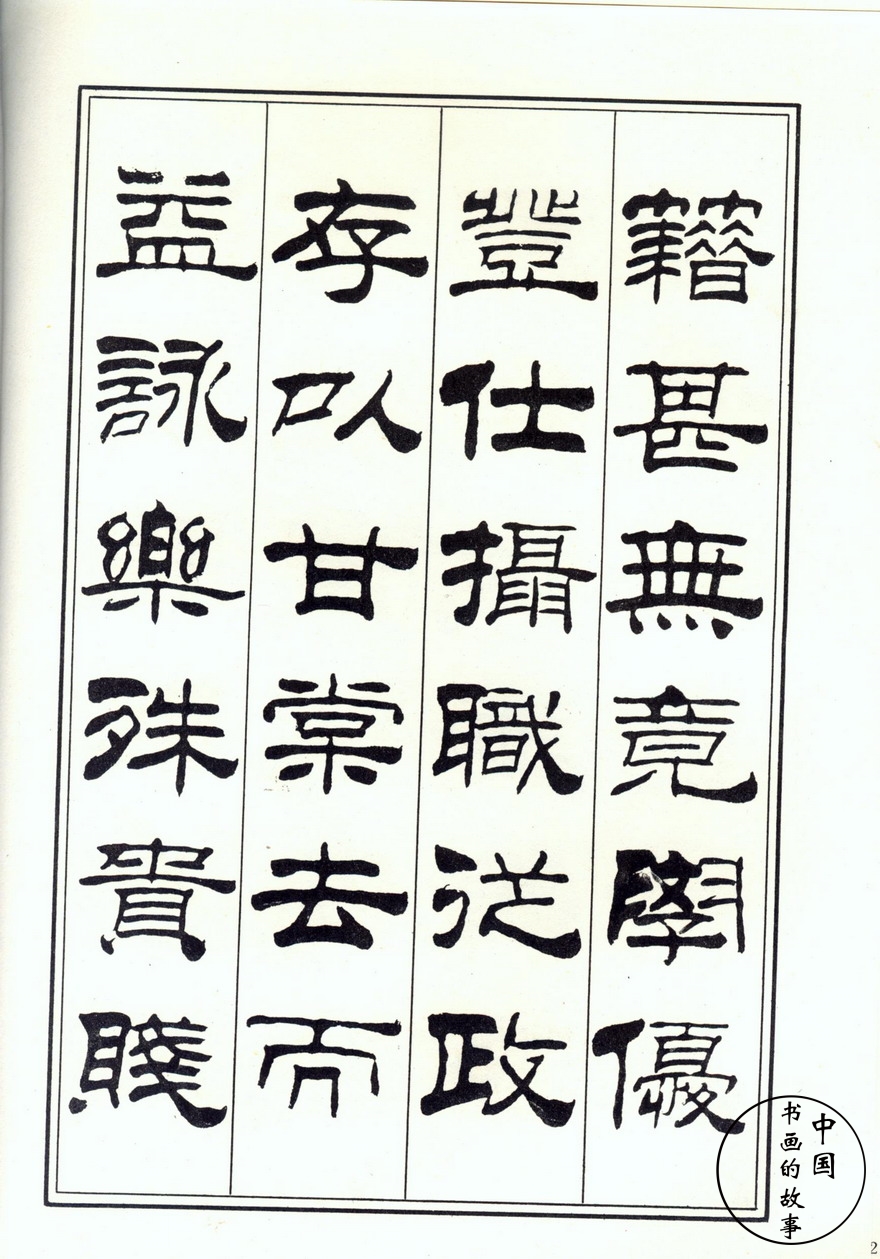 籍甚無竟學優
登仕攝職從政
存以甘棠去而
益詠樂殊貴賤
中国
书画的故事
2